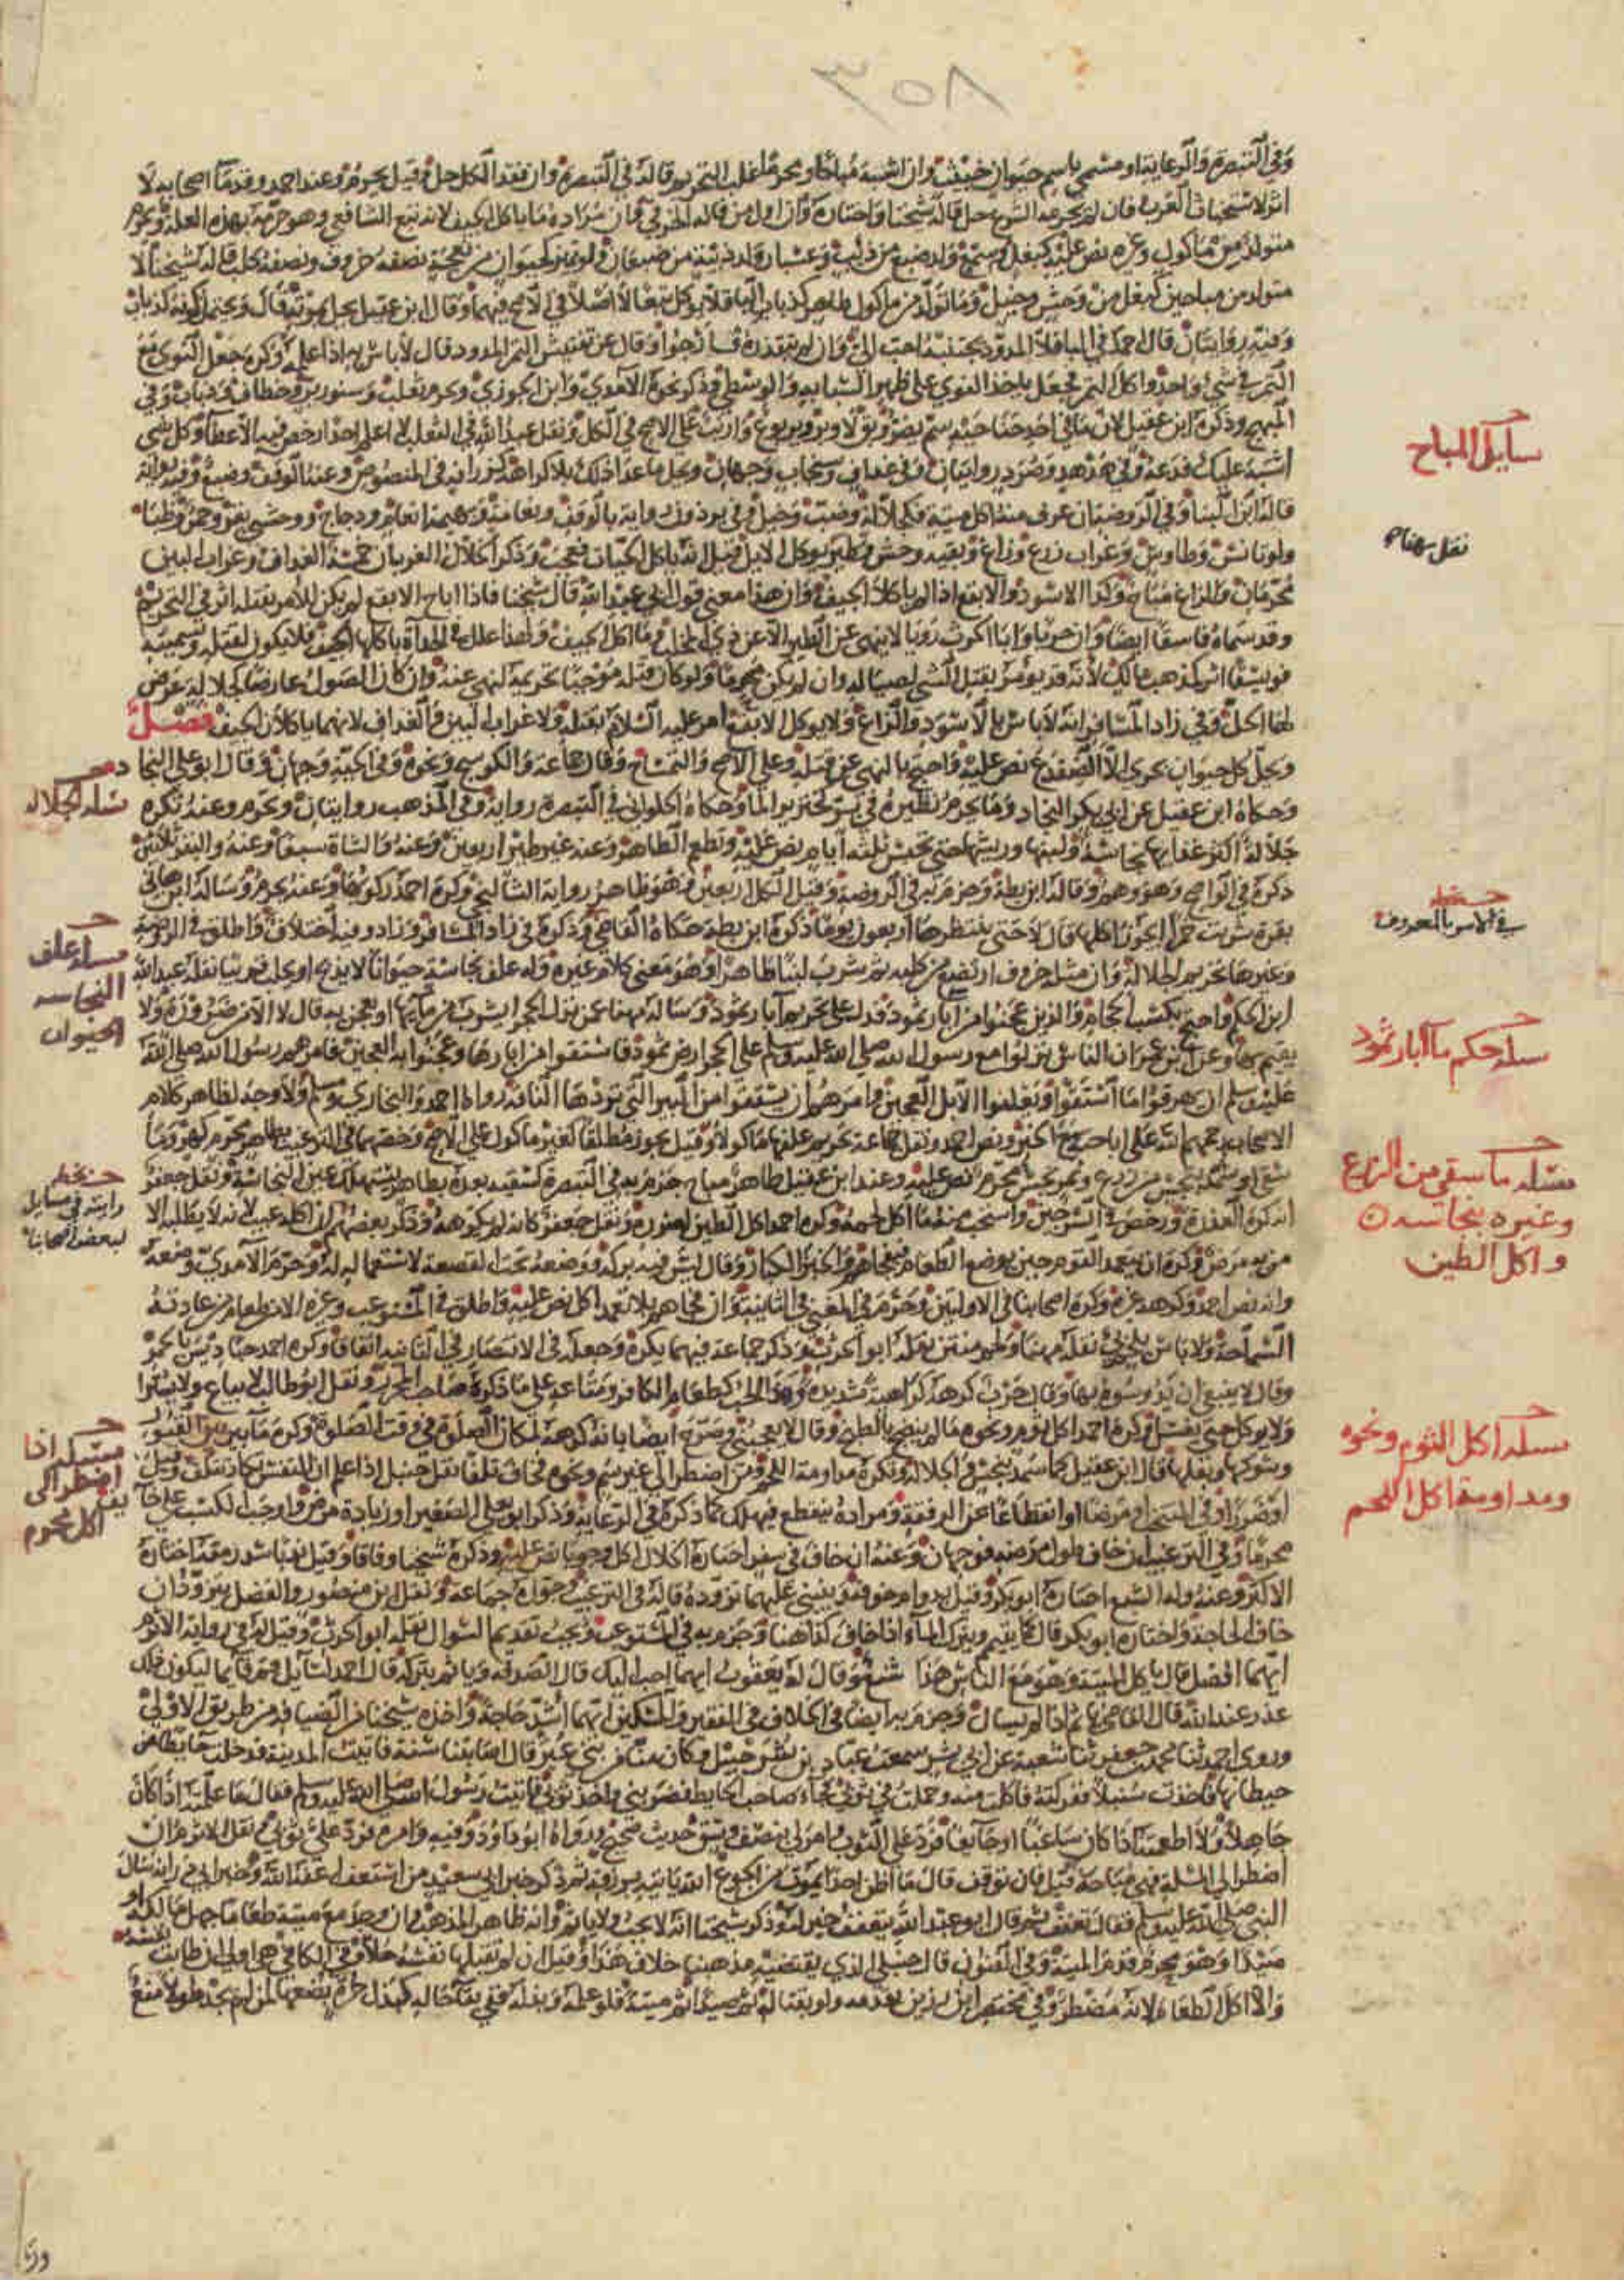 ٣٥٨
وفي التبصرة والرعاية او مسمى باسم حيوان خبيث وان اشتبه مباحا ومحرما غلب التحريم قاله في التبصرة وان فقد الكل حل وقيل يحرم وعند احمد وقدماء اصحابه لا
اثر لاستخباث العرب فان لم يحرمه الشرع حل قاله شيخنا واختاره وان اول من قاله الخرقي وان مراده ما ياكل الجيف لانه تبع الشافعي وهو حرمه بهذه العلة ويحرم
متولد من ماكول وغيره نص عليه كبغل وسمع ولد ضبع من ذئب وعسبار ولد ذئبة من ضبعان ولو تميز كحيوان من نعجة نصفه خروف ونصفه كلب قاله شيخنا لا
متولد من مباحين كبغل من وحش وخيل وما تولد من ماكول طاهر كذباب الباقلا يوكل تبعا لا اصلا في الاصح فيهما وقال ابن عقيل يحل بموته قال ويحتمل كونه كذباب
وفيه روايتان قال احمد في الباقلا المدود يجتنبه احب الي وان لم يتقذره فارجو وقال عن تفتيش التمر المدود قال لا باس به اذا علمه وكره جعل النوى مع
التمر في شي واحد واكل التمر فجعل ياخذ النوى على ظهر السبابة والوسطى فذكر نحوه الآمدي وابن الجوزي ويحرم ثعلب وسنور بر وخطاف وذباب وفي
المبهج وذكره ابن عقيل لان في احد جناحيه سم بضر وبق لا وبر ويربوع وارنب على الاصح في الكل ونقل عبد الله في الثعلب لا اعلم احدا رخص فيه الا عطا وكل شي
اشتبه عليك فدعه وفي هدهد وصرد روايتان وفي غداف وسنجاب وجهان ويحل ما عدا ذلك بلا كراهة كزرافة في المنصوص وعنه الوقف وضبع وفيه رواية
قاله ابن البنا وفي الروضة ان عرف منه اكل ميتة فكجلالة وضب وخيل وفي برذون رواية بالوقف ونعامة وبهيمة انعام ودجاج ووحشي بقر وحمر وظبا
ولو تانس وطاوس وغراب زرع وزاغ وبقية وحش وطير ويوكل الايل قيل له انه ياكل الحيات فعجب وذكر الخلال الغربان خمسة الغداف وغراب البين
محرمان والزاغ مباح وكذا الاسود والابقع اذا لم ياكلا الجيف وان هذا معنى قول ابي عبد الله قال شيخنا فاذا اباح الابقع لم يكن للامر بقتله اثر في التحريم
وقد سماه فاسقا ايضا وان حربا وابا الحرث رويا لا ينهى عن الطير الا عن ذي المخلب وما اكل الجيف
فويسقا اثر كمذهب مالك لانه قد يومر بقتل الشي لصياله وان لم يكن محرما ولو كان قتله موجبا تحريمه لنهي عنه وان كان الصول عارضا كجلالة عرض
لها الحل وفي زاد المسافر انه لا باس بالاسود والزاغ ولا يوكل الابقع امر عليه السلام بقتله ولا غراب البين والغداف لانهما ياكلان الجيف فصل
ويحل كل حيوان بحري الا الضفدع نص عليه واحتج بالنهي عن قتله وعلى الاصح والتمساح وقال جماعة والكوسج ونحوه وفي الحية وجهان وقال ابو علي النجاد
وحكاه ابن عقيل عن ابي بكر النجاد وما يحرم نظيره في بر كخنزير الما وحكاه الحلواني في التبصرة رواية وفي المذهب روايتان وتحرم وعنه تكره
جلالة اكثر غذايها نجاسة ولبنها وبيضها حتى تحبس ثلثة ايام نص عليه وتطعم الطاهر وعنه غير طير اربعين وعنه والشاة سبعا وعنه والبقر ثلاثين
ذكره في الواضح وهو وهم وقاله ابن بطة وجزم به في الروضة وقيل الكل اربعين وهو ظاهر رواية الشالنجي وكره احمد ركوبها وعنه يحرم وساله ابن هاني
بقرة شربت خمرا ايجوز اكلها قال لا حتى ينتظر بها اربعون يوما ذكره ابن بطة حكاه القاضي وذكره في زاد المسافر وزاد وفيه اختلاف واطلق في الروضة
وغيرها تحريم الجلالة وان مثله خروف ارتضع من كلبه ثم شرب لبنا طاهرا وهو معنى كلام غيره وله علف نجاسة حيوانا لا يذبح او يحلب قريبا نقله عبد الله
ابن الحكم واحتج بكسب الحجام والذين عجنوا من آبار ثمود فدل على تحريم آبار ثمود وساله مهنا عمن نزل الحجر ايشرب من مآيها او يعجن به قال لا الا من ضرورة ولا
يقيم بها وعن ابن عمر ان الناس نزلوا مع رسول الله صلى الله عليه وسلم على الحجر ارض ثمود فاستقوا من ابارها وعجنوا به العجين فامرهم رسول الله صلى الله
عليه وسلم ان يهرقوا ما استقوا ويعلفوا الابل العجين وامرهم ان يستقوا من البير التي تردها الناقة رواه احمد والبخاري ومسلم ولا وجه لظاهر كلام
الاصحاب رحمهم الله على اباحته مع الخبر ونص احمد ونقل جماعة تحريم علفها ماكولا وقيل يجوز مطلقا لغير ماكول على الاصح وخصهما في الترغيب بطاهر محرم كهر وما
سقي او سمد بنجس من زرع وثمر نجس محرم نص عليه وعند ابن عقيل طاهر مباح جزم به في التبصرة كسقيه بعده بطاهر يستهلك عين النجاسة ونقل جعفر
انه كره العذرة ورخص في السرجين واستحب اكل لحمه وكره احمد اكل الطين لضرره ونقل جعفر كانه لم يكرهه وذكر بعضهم ان اكله عيب لانه لا يطلبه الا
من به مرض وكره ان يتعمد القوم حين يوضع الطعام فيفجاهم والخبز الكبار وقال ليس فيه بركة ووضعه تحت القصعة لاستعماله له وحرمه الآمدي
وانه نص احمد وكرهه غيره وكره اصحابنا في الاولين وجزم في المغني في الثانية وان فجاهم بلا تعمد اكل نص عليه واطلق في المستوعب وغيره الا من طعام من عادته
السماحة ولا باس بلحم ني نقله مهنا ولحم منتن نقله ابو الحرث وذكر جماعة فيهما يكره وجعله في الانتصار في الثانية اتفاقا وكره احمد حبا ديس بالحمر
وقال لا ينبغي ان يدوسوه بها وقال حرب كرهه كراهية شديدة وهذا الحب كطعام الكافر ومتاعه على ما ذكره صاحب المحرر ونقل ابو طالب لا يباع ولا يشترا
ولا يوكل حتى يغسل وكره احمد اكل ثوم ونحوه ما لم ينضج بالطبخ وقال لا يعجبني وصرح ايضا بانه كرهه لمكان الصلوة في وقت الصلوة وكره ما بين القبور
وشوكها وبقلها قال ابن عقيل كما سمد بنجس والجلالة وتكره مداومة اللحم ومن اضطر الى غير سم ونحوه فخاف تلفا نقل حنبل اذا علم ان النفس تكاد تتلف وقيل
او ضررا وفي المنتخب او مرضا او انقطاعا عن الرفقة ومراده ينقطع فيهلك كما ذكره في الرعاية وذكر ابو يعلى الصغير او زيادة مرض واوجب الكسب على خائف
محرما وفي الترغيب ان خاف طول مرضه فوجهان وعنه ان خاف في سفر اختاره الخلال اكل وجوبا نص عليه وذكره شيخنا وفاقا وقيل ندبا سد رمقه اختاره
الاكثر وعنه وله الشبع اختاره ابو بكر وقيل بدوام خوفه ويبني عليهما تزوده قاله في الترغيب وجوازه جماعة ونقل ابن منصور والفضل يتزود ان
خاف الحاجة واختاره ابو بكر قال كما يتيمم ويترك الماء اذا خاف كذا هنا وجزم به في المستوعب ويجب تقديم السوال نقله ابو الحرث وقيل له في رواية الاثرم
ايهما افضل قال ياكل الميتة وهو مع الناس هذا شنع وقال له يعقوب ايهما احب اليك قال الصدقة وياثم بتركه قال احمد لسايل قم قآيما ليكون لك
عذر عند الله قال القاضي ياثم اذا لم يسال وجزم به ايضا في الخلاف في الفقير والمسكين ايهما اشد حاجة واخذه شيخنا من الضيافة من طريق الاولى
وروى احمد ثنا محمد بن جعفر ثنا شعبة عن ابي بشر سمعت عباد بن شرحبيل وكان منا من بني غبر قال اصابتنا سنة فاتيت المدينة فدخلت حايطا من
حيطانها فاخذت سنبلا ففركته فاكلت منه وحملت في ثوبي فجاء صاحب الحايط فضربني واخذ ثوبي فاتيت رسول الله صلى الله عليه وسلم فقال ما علمته اذ كان
جاهلا ولا اطعمته اذ كان ساغبا او جايعا فرد علي الثوب وامر لي بنصف وسق حديث صحيح ورواه ابو داود وفيه وامره فرد علي ثوبي ونقل الاثرم ان
اضطر الى المسلة فهي مباحة قيل فان توقف قال ما اظن احدا يموت من الجوع الله ياتيه برزقه ثم ذكر خبر ابي سعيد من استعف اعفه الله وخبر ابي ذر انه سال
النبي صلى الله عليه وسلم فقال تعفف ثم قال ابو عبد الله يتعفف خير له وذكر شيخنا انه لا يجب ولا ياثم وانه ظاهر المذهب وان وجد مع ميتة طعاما جهل مالكه او
صيدا وهو محرم قدم الميتة وفي الفنون قال حنبلي الذي يقتضيه مذهبنا خلاف هذا وقيل ان لم تقبلها نفسه حلا وفي الكافي هي اولى ان طابت نفسه
والا اكل الطعام لانه مضطر وفي مختصر ابن رزين يقدمه ولو بقتاله ثم صيدا ثم ميتة فلو علمه وبذله ففي بقآ حله كبذل حرة بضعها لمن لم يجد طولا منع
مسايل المباح
نقل مهنا
مسلة الجلالة
مسلة علف
النجاسه
الحيوان
مسلة حكم مآ آبار ثمود
مسلة ما سقي من الزرع
وغيره بنجاسه
واكل الطين
رايته في مسايل
لبعض اصحابنا
مسلة اكل الثوم ونحوه
ومداومة اكل اللحم
مسلة اذا
اضطر الى
اكل محرم